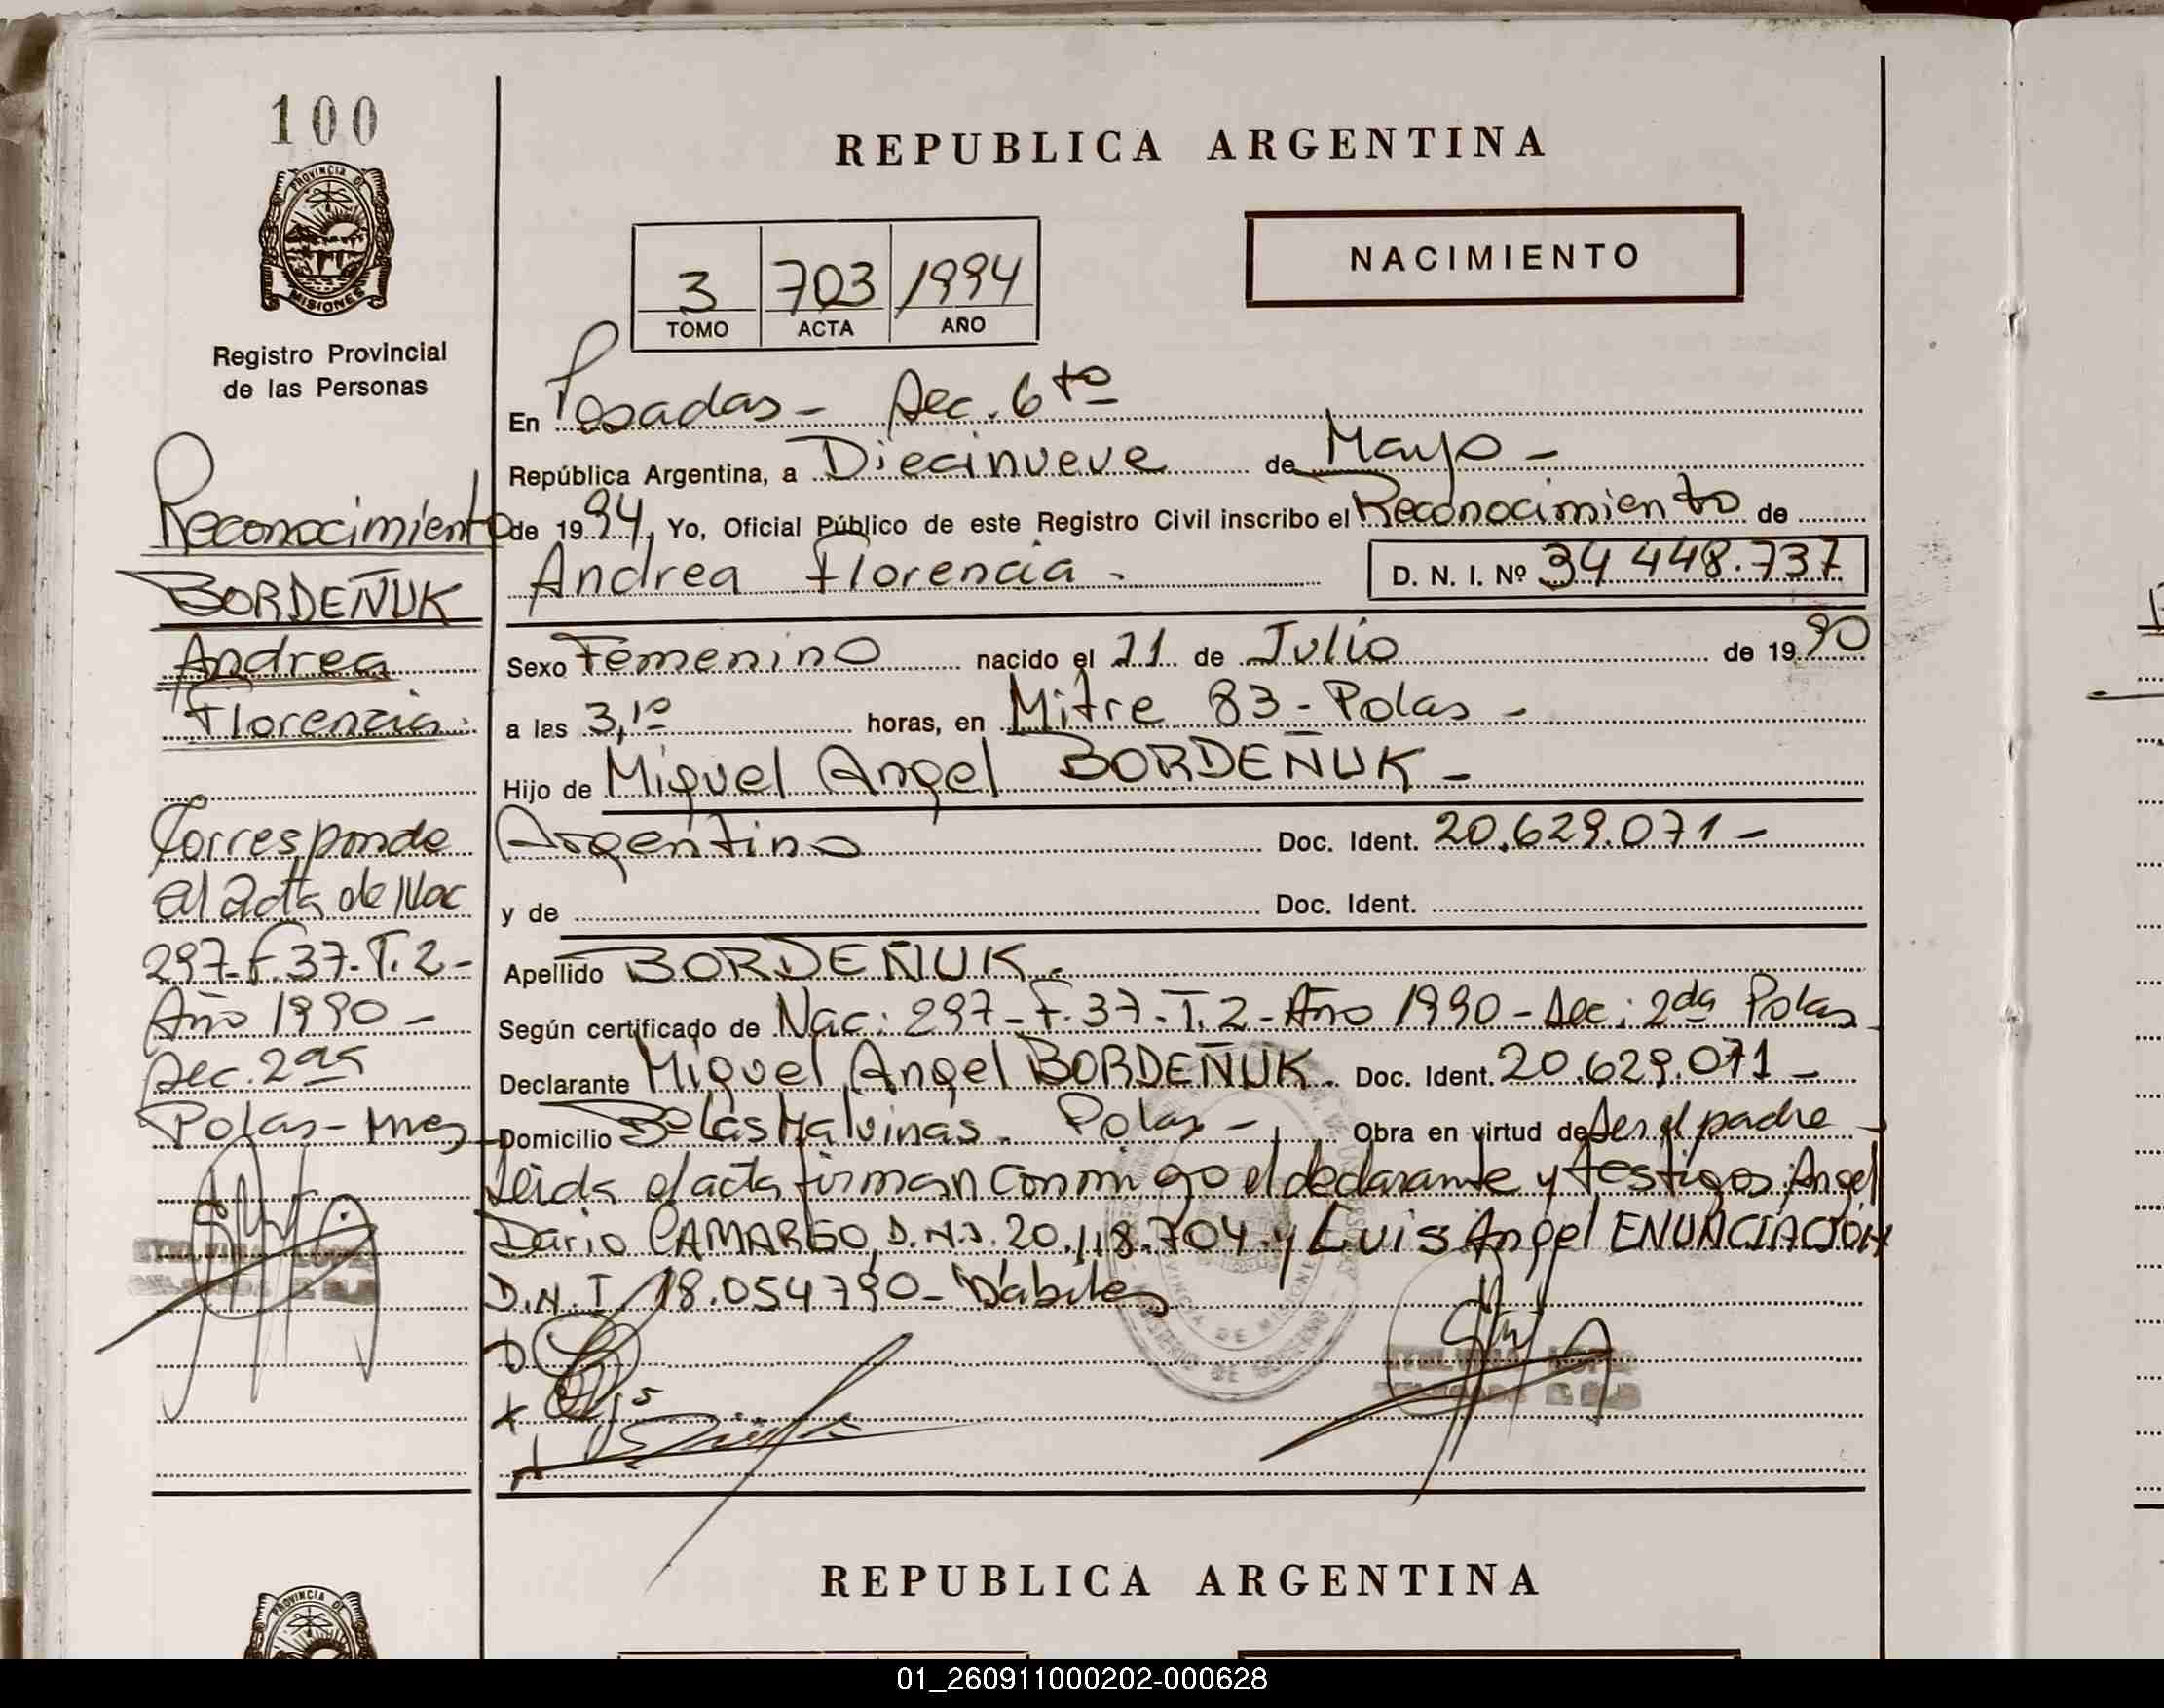 100
PROVINCIA DE
MISIONES
Registro Provincial
de las Personas
Reconocimiento
BORDEÑUK
Andrea
Florencia.
Corresponde
al acta de Nac
297-F.37-T.2-
Año 1990-
Sec. 2da
Polas-Mnes
REPUBLICA ARGENTINA
NACIMIENTO
3 703 1994
TOMO ACTA AÑO
En Posadas - Sec. 6to
República Argentina, a Diecinueve de Mayo -
de 1994, Yo, Oficial Público de este Registro Civil inscribo el Reconocimiento de
Andrea Florencia - D. N. I. Nº 34 448.737
Sexo Femenino nacido el 21 de Julio de 1990
a las 3,10 horas, en Mitre 83-Polas -
Hijo de Miguel Angel BORDEÑUK -
Argentino Doc. Ident. 20.629.071-
y de Doc. Ident.
Apellido BORDEÑUK.
Según certificado de Nac: 297-F.37-T.2-Año 1990-Sec: 2da Polas
Declarante Miguel Angel BORDEÑUK. Doc. Ident. 20.629.071-
Domicilio Malvinas. Polas - Obra en virtud de Ser el padre
Leida el acta firman conmigo el declarante y testigos: Angel
Dario CAMARGO, D.N.I. 20.118.704 y Luis Angel ENUNCIACION
D.N.I. 18.054790-
REPUBLICA ARGENTINA
PROVINCIA DE
01_260911000202-000628